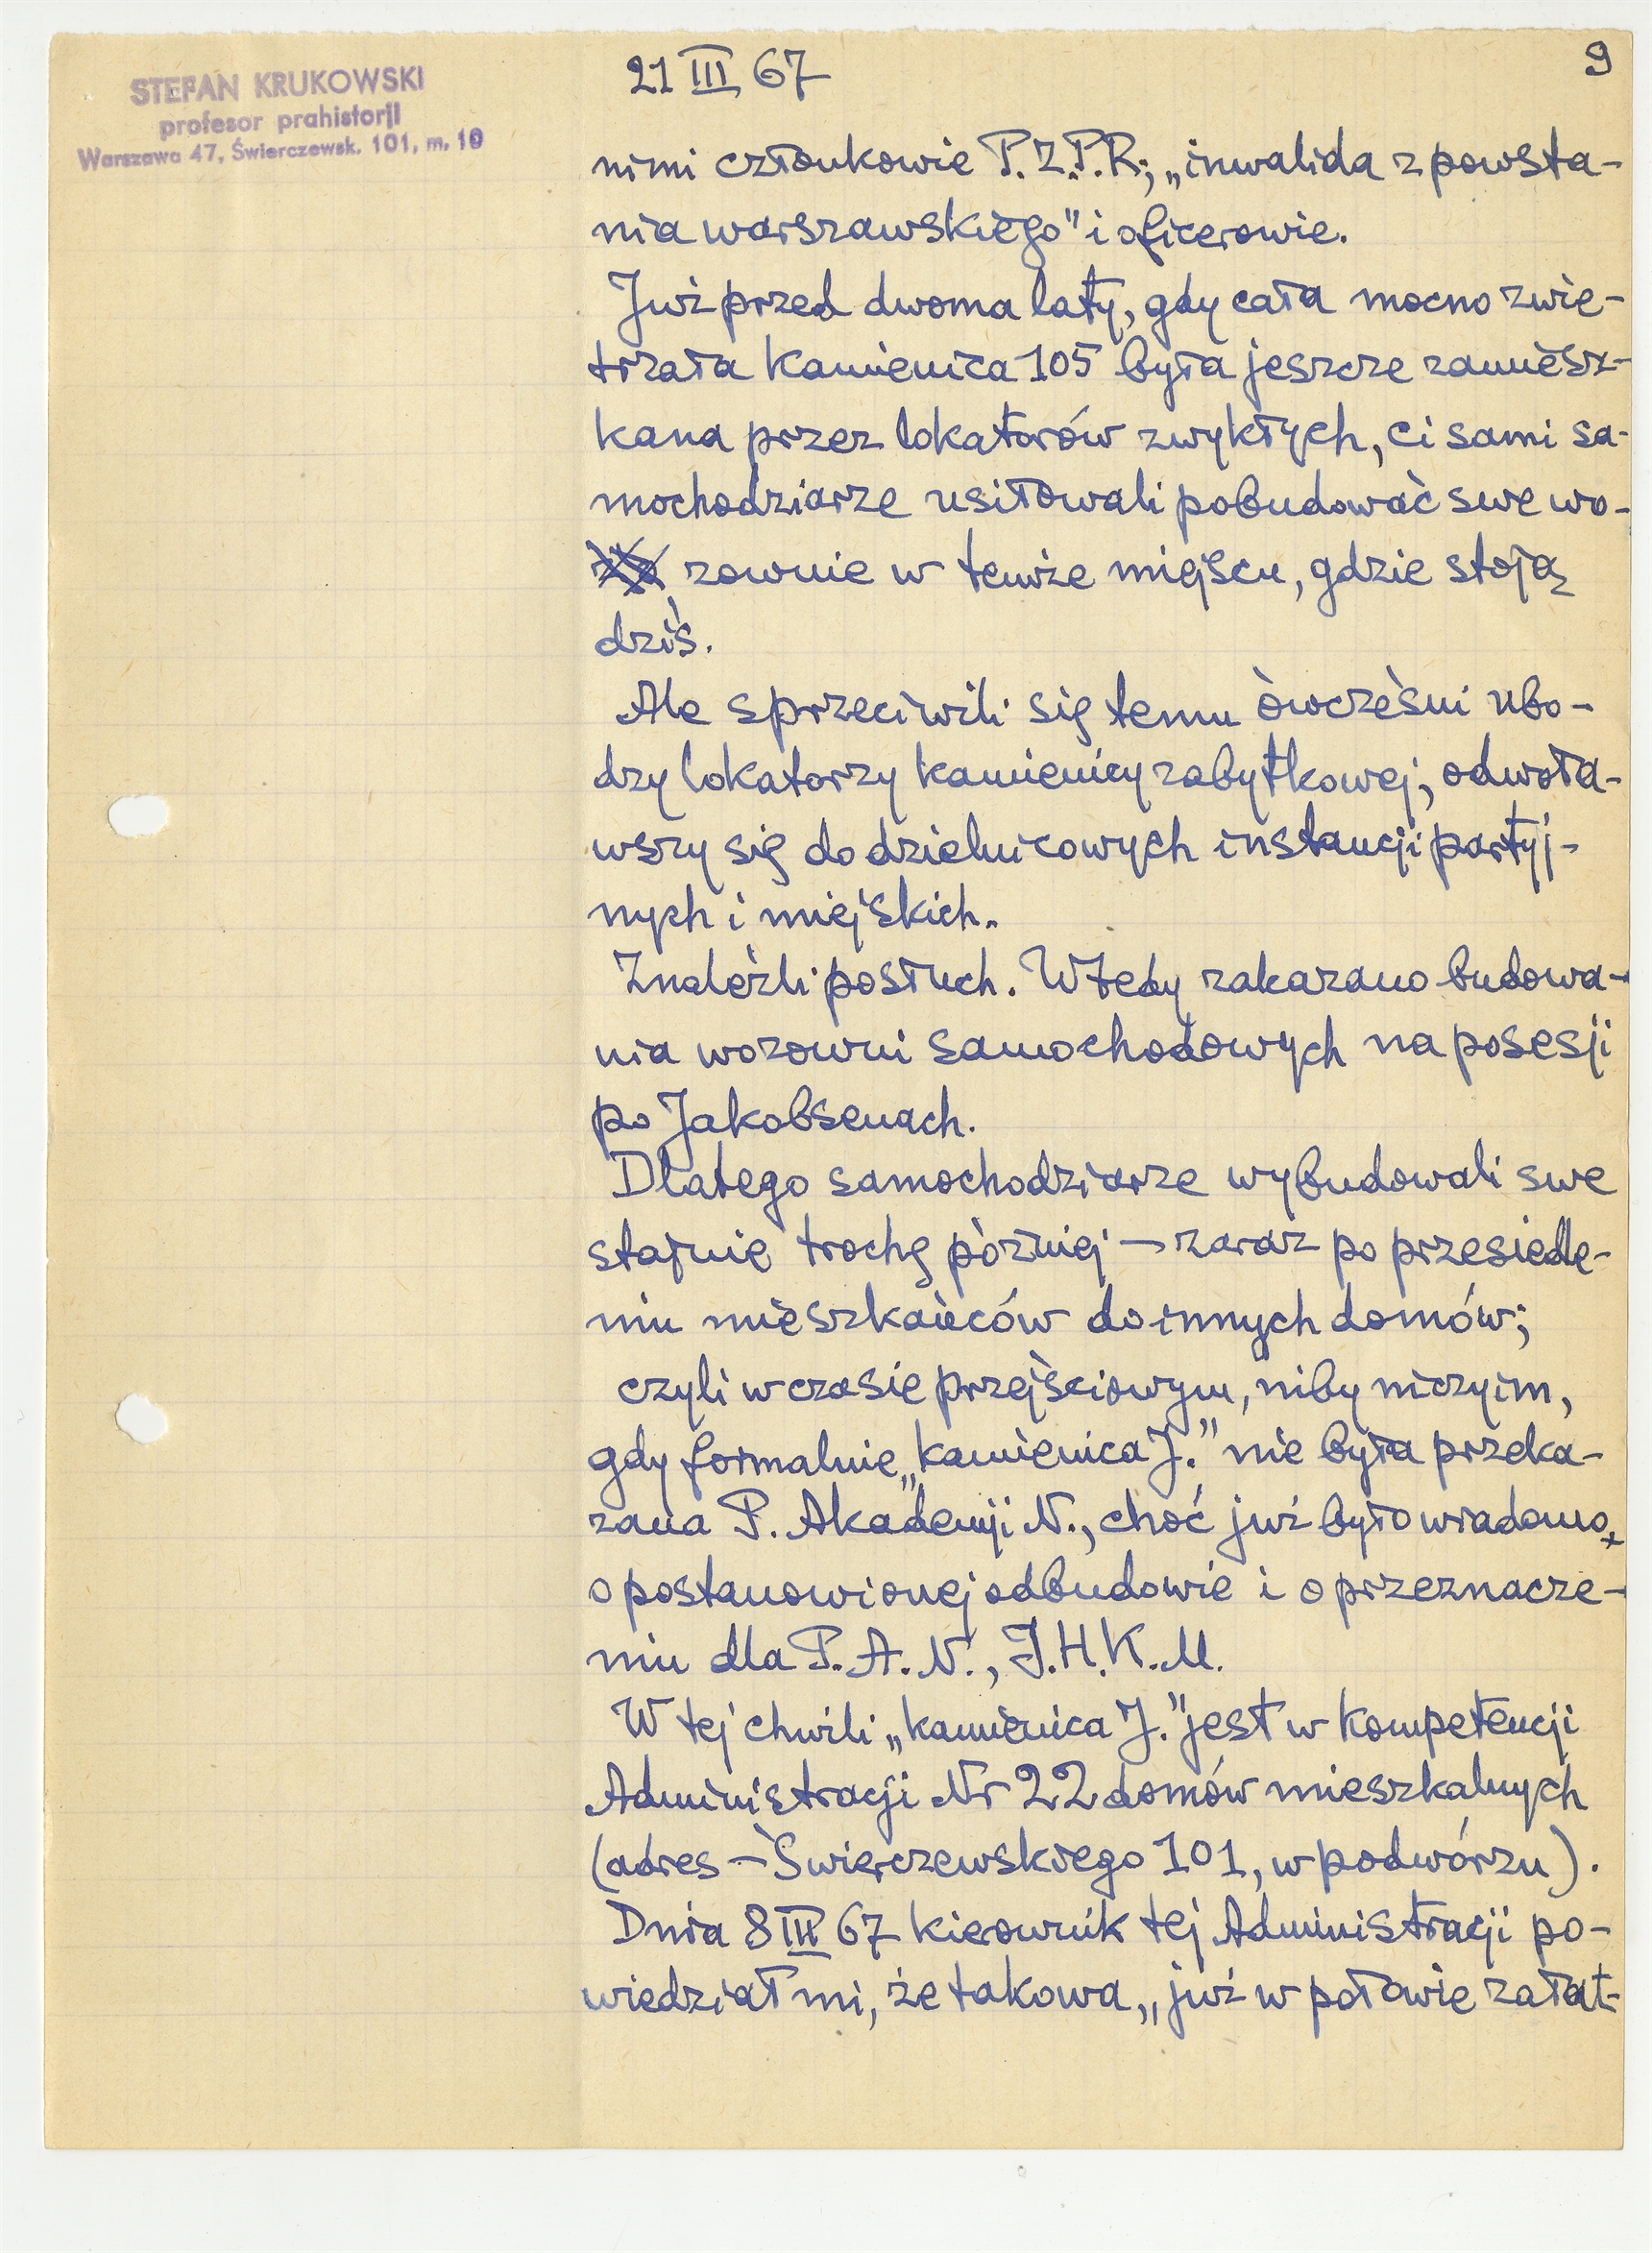 STEFAN KRUKOWSKI
profesor prahistorji
Warszawa 47, Świerczewsk. 101, m. 10
21 III 67
9
nimi członkowie P.Z.P.R.; „inwalida z powsta-
nia warszawskiego" i oficerowie.
Już przed dwoma laty, gdy cała mocno zwie-
trzała kamienica 105 była jeszcze zamiesz-
kana przez lokatorów zwykłych, ci sami sa-
mochodziarze usiłowali pobudować swe wo-
zownie w temże miejscu, gdzie stoją
dziś.
Ale sprzeciwili się temu ówcześni ubo-
dzy lokatorzy kamienicy zabytkowej, odwoła-
wszy się do dzielnicowych instancji partyj-
nych i miejskich.
Znaleźli posłuch. Wtedy zakazano budowa-
nia wozowni samochodowych na posesji
po Jakobsenach.
Dlatego samochodziarze wybudowali swe
stajnie trochę później – zaraz po przesiedle-
niu mieszkańców do innych domów;
czyli w czasie przejściowym, niby niczyim,
gdy formalnie „kamienica J." nie była przeka-
zana P. Akademji N., choć już było wiadomo
o postanowionej odbudowie i o przeznacze-
niu dla P.A.N., I.H.K.M.
W tej chwili „kamienica J." jest w kompetencji
Administracji Nr 22 domów mieszkalnych
(adres – Świerczewskiego 101, w podwórzu).
Dnia 8 III 67 kierownik tej Administracji po-
wiedział mi, że takowa „już w połowie załat-